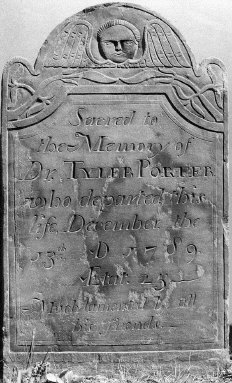 Sacred to
the Memory of
Dr. TYLER PORTER
who departed this
life, December the
13th D. 1789
Ætat. 25
Much lamented by all
his friends.